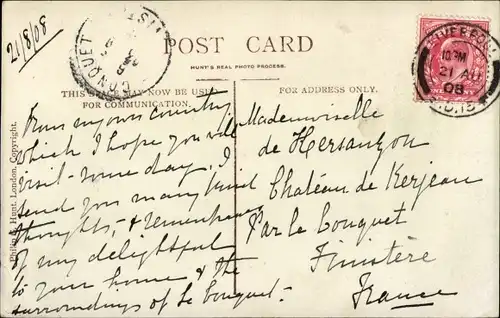 21/8/08
CONQUET
POST CARD
HUNT'S REAL PHOTO PROCESS.
LIVERPOOL
10.PM
21 AU
08
THIS SPACE MAY NOW BE USED
FOR COMMUNICATION.
FOR ADDRESS ONLY.
From my own country
which I hope you will
visit some day. I
send you many kind
thoughts, & remembrances
of my delightful
to your home & the
surroundings of Le Conquet.
Mademoiselle
de Hersangon
Château de Kerjean
Par le Conquet
Finistère
France
Philip G. Hunt, London, Copyright.